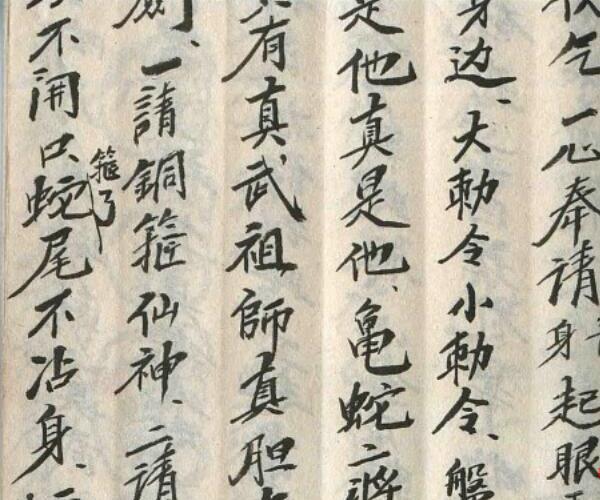 气一心奉请身起眼
身边、大勅令小勅令、盤
是他真是他、亀蛇二將
有真武祖師真胆
一請銅箍仙神、二請
不開口蛇尾不沾身、
箍了